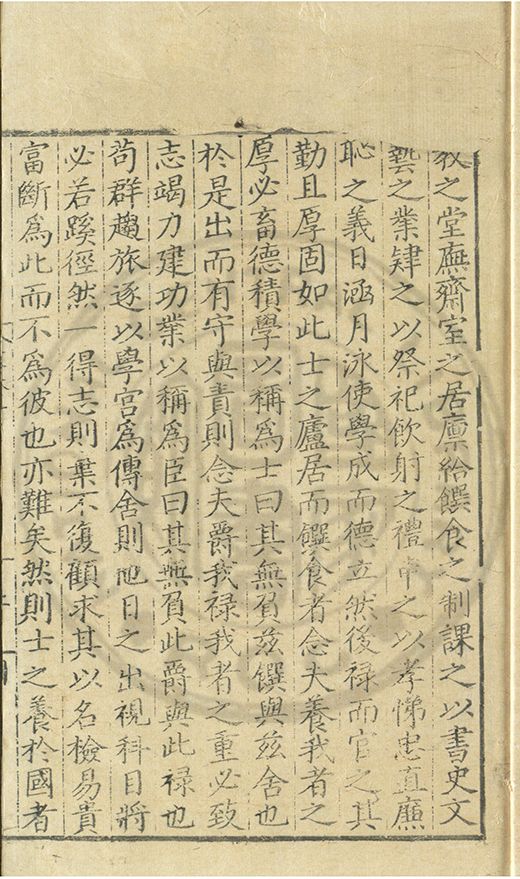 教之堂廡齋室之居廩給饌食之制課之以書史文
藝之業肄之以祭祀飲射之禮申之以孝悌忠直廉
恥之義日涵月泳使學成而德立然後祿而官之其
勤且厚固如此士之廬居而饌食者念夫養我者之
厚必畜德積學以稱為士曰其無負茲饌與茲舍也
於是出而有守與責則念夫爵我祿我者之重必致
志竭力建功業以稱為臣曰其無負此爵與此祿也
苟群趨旅逐以學宮為傳舍則他日之出視科目將
必若蹊徑然一得志則棄不復顧求其以名檢易貴
富斷為此而不為彼也亦難矣然則士之養於國者